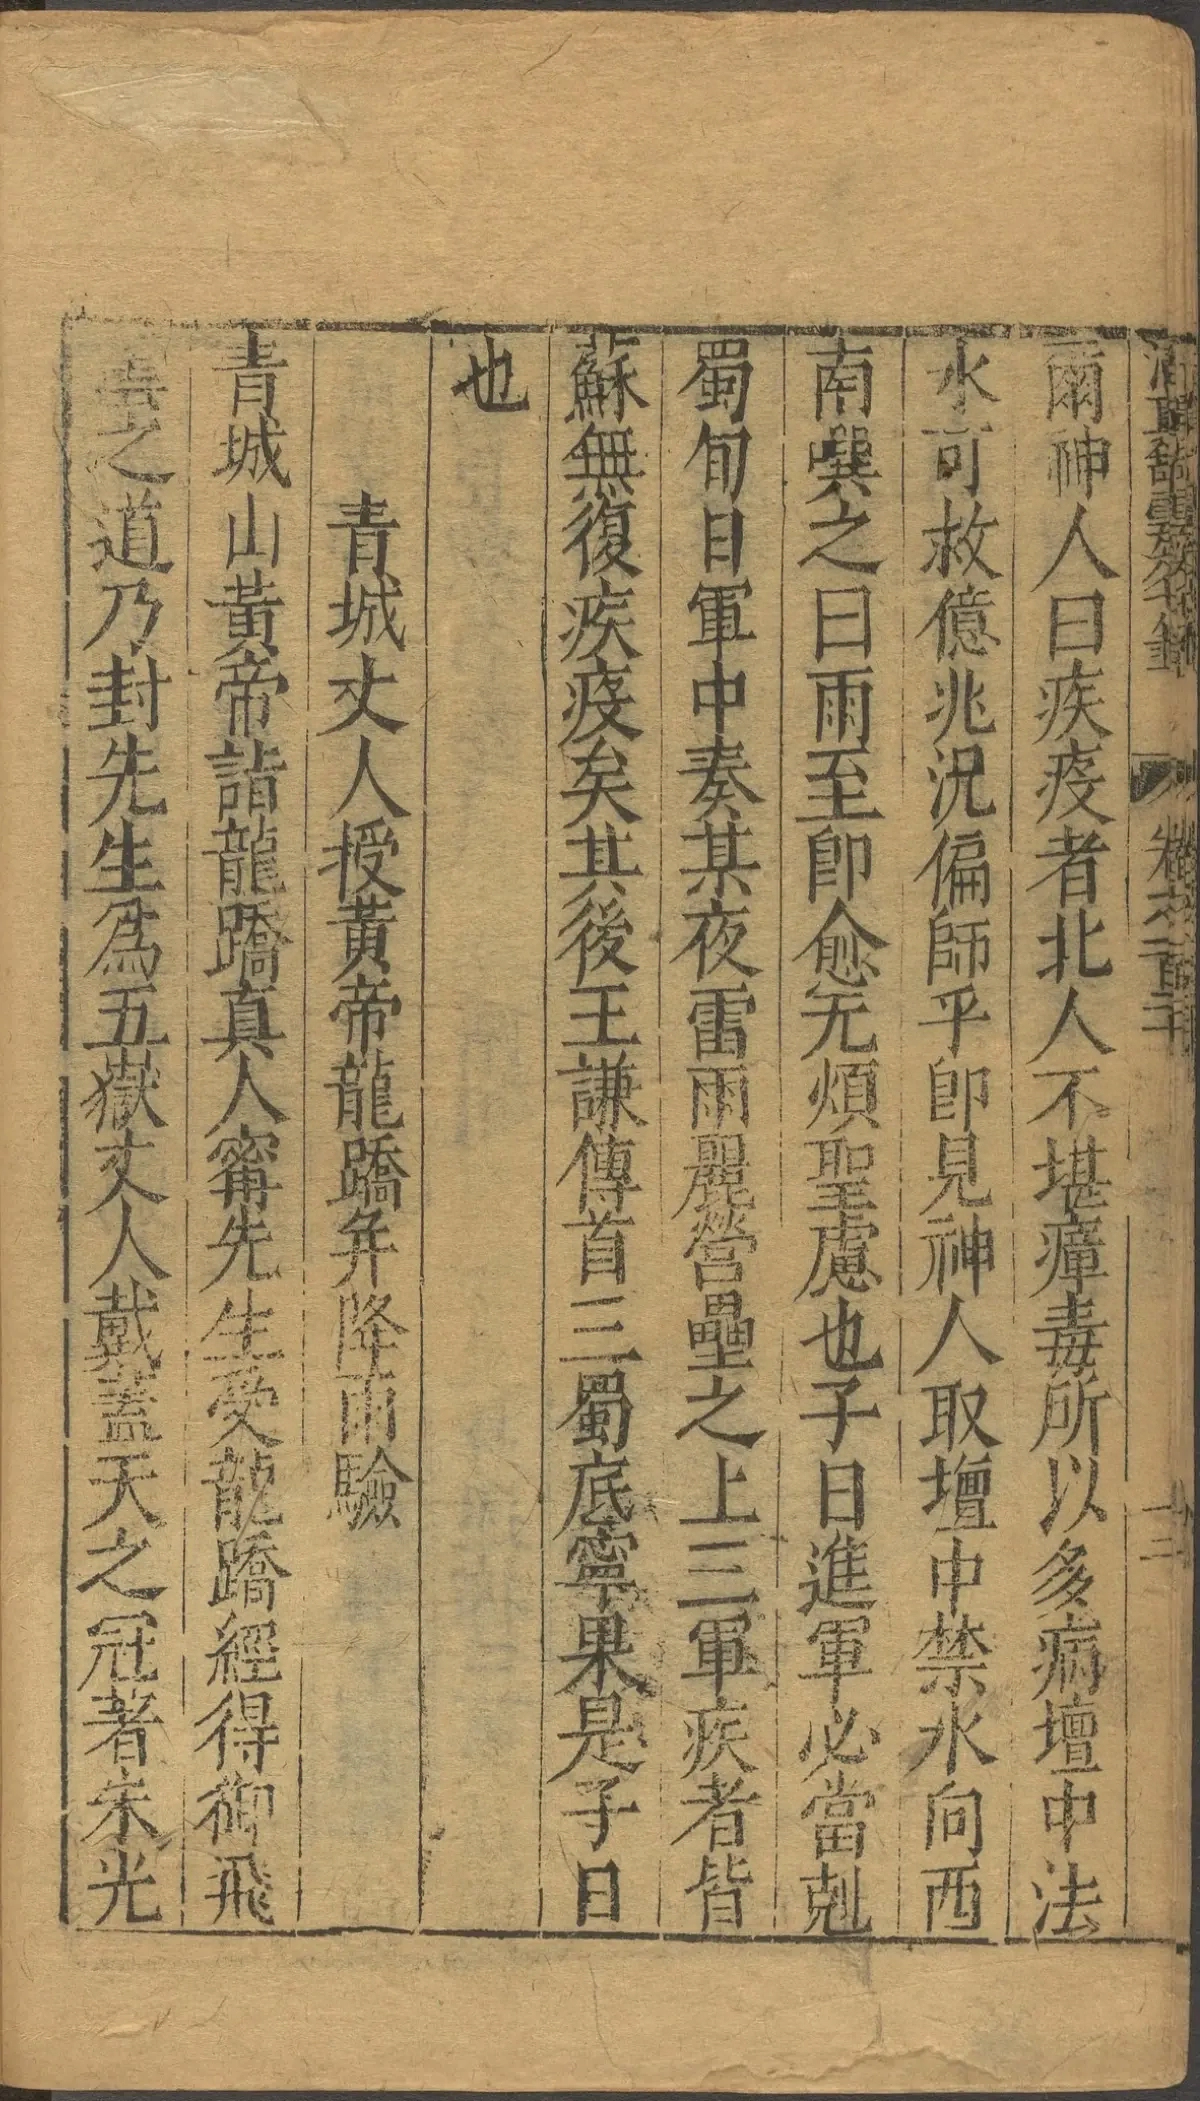 爾神人曰疾疫者北人不堪瘴毒所以多病壇中法
水可救億兆況偏師乎卽見神人取壇中禁水向西
南噀之曰雨至卽愈无煩聖慮也子日進軍必當剋
蜀旬日軍中奏某夜雷雨麗營壘之上三軍疾者皆
蘇無復疾疫矣其後王謙傳首三蜀底寧果是子日
也
青城丈人授黃帝龍蹻并降雨驗
青城山黃帝詣龍蹻真人甯先生受龍蹻經得御飛
雲之道乃封先生爲五嶽丈人戴蓋天之冠著朱光